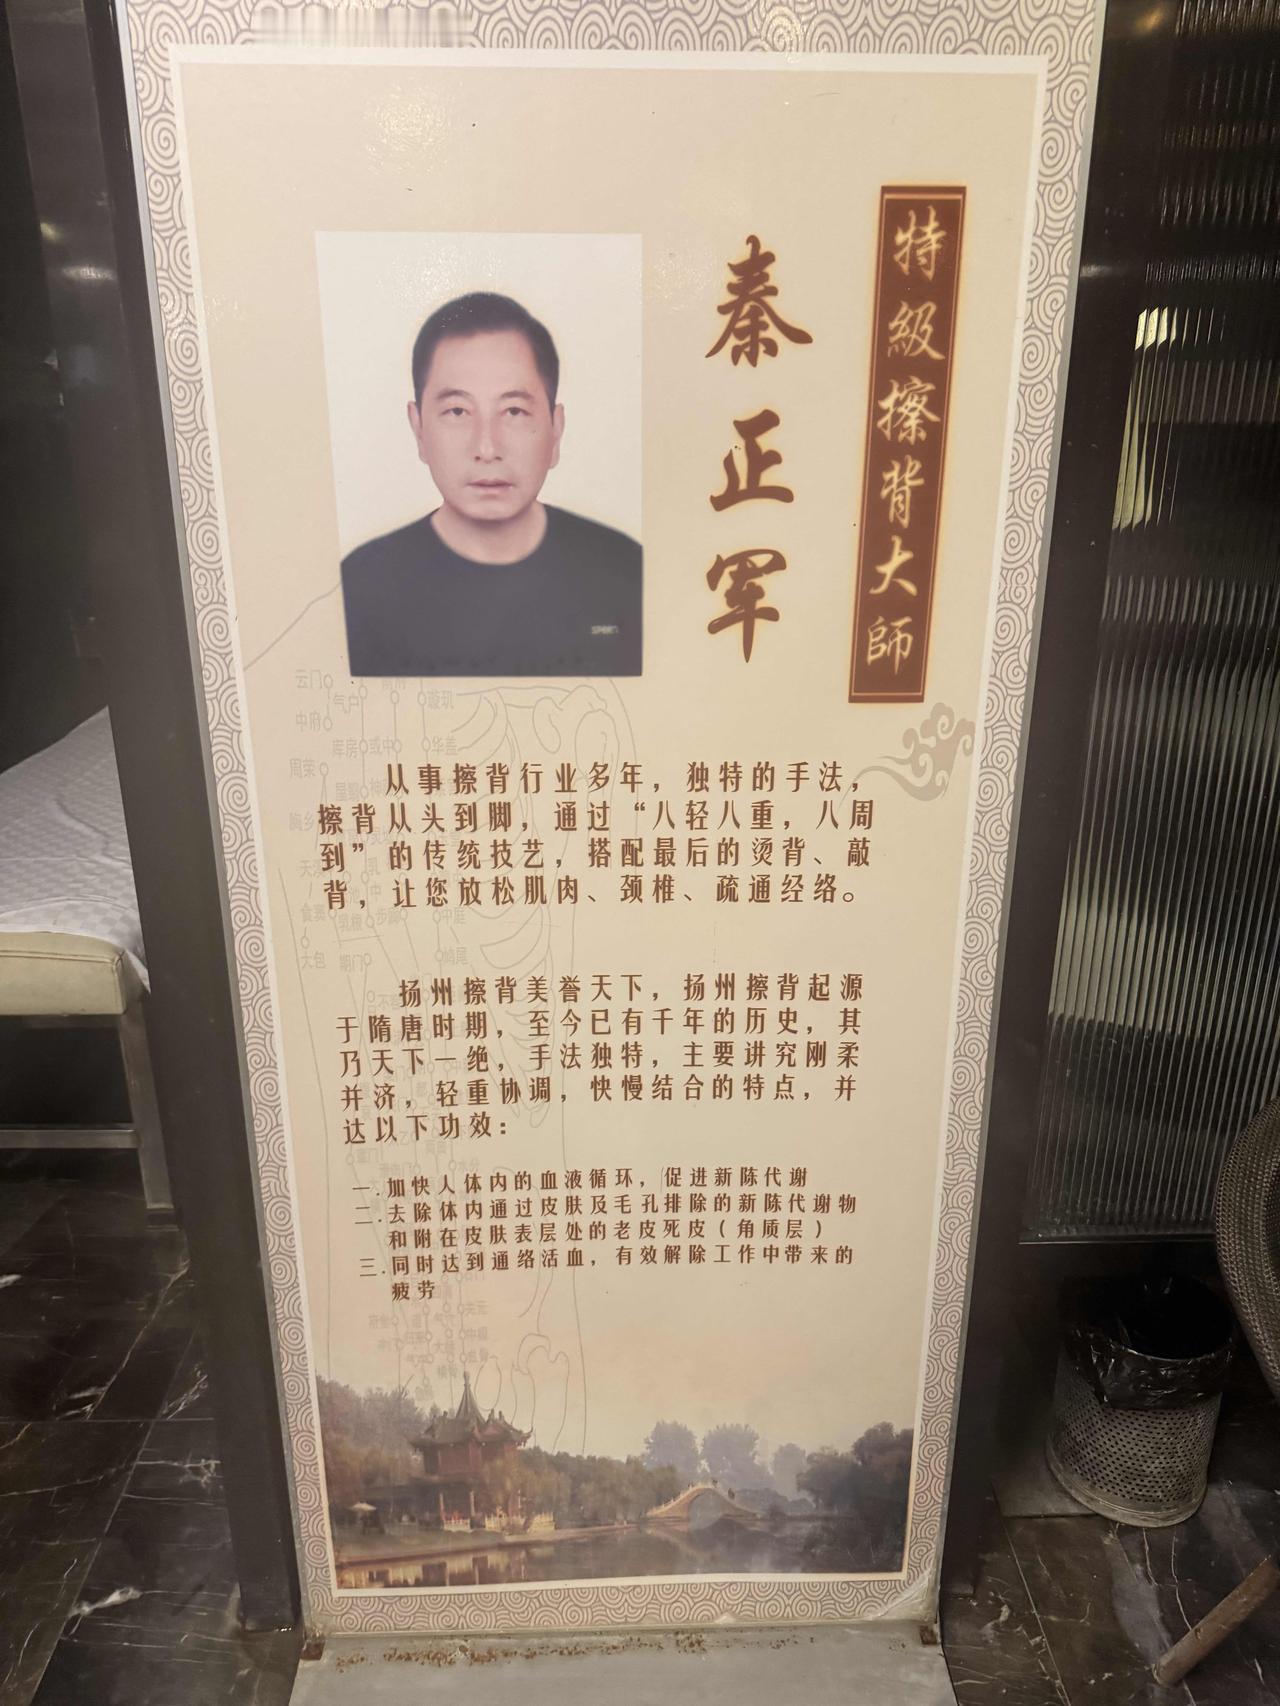 特級擦背大師
秦正军
SPORT
云门
气户
璇玑
中府
库房
或中
华盖
周荣
从事擦背行业多年，独特的手法，
擦背从头到脚，通过“八轻八重，八周
到”的传统技艺，搭配最后的烫背、敲
背，让您放松肌肉、颈椎、疏通经络。
胸乡
食窦
乳根
步廊
中庭
鸠尾
大包
期门
扬州擦背美誉天下，扬州擦背起源
于隋唐时期，至今已有千年的历史，其
乃天下一绝，手法独特，主要讲究刚柔
并济，轻重协调，快慢结合的特点，并
达以下功效：
章门
水分
一.加快人体内的血液循环，促进新陈代谢
二.去除体内通过皮肤及毛孔排除的新陈代谢物
和附在皮肤表层处的老皮死皮（角质层）
三.同时达到通络活血，有效解除工作中带来的
疲劳
关元
中极